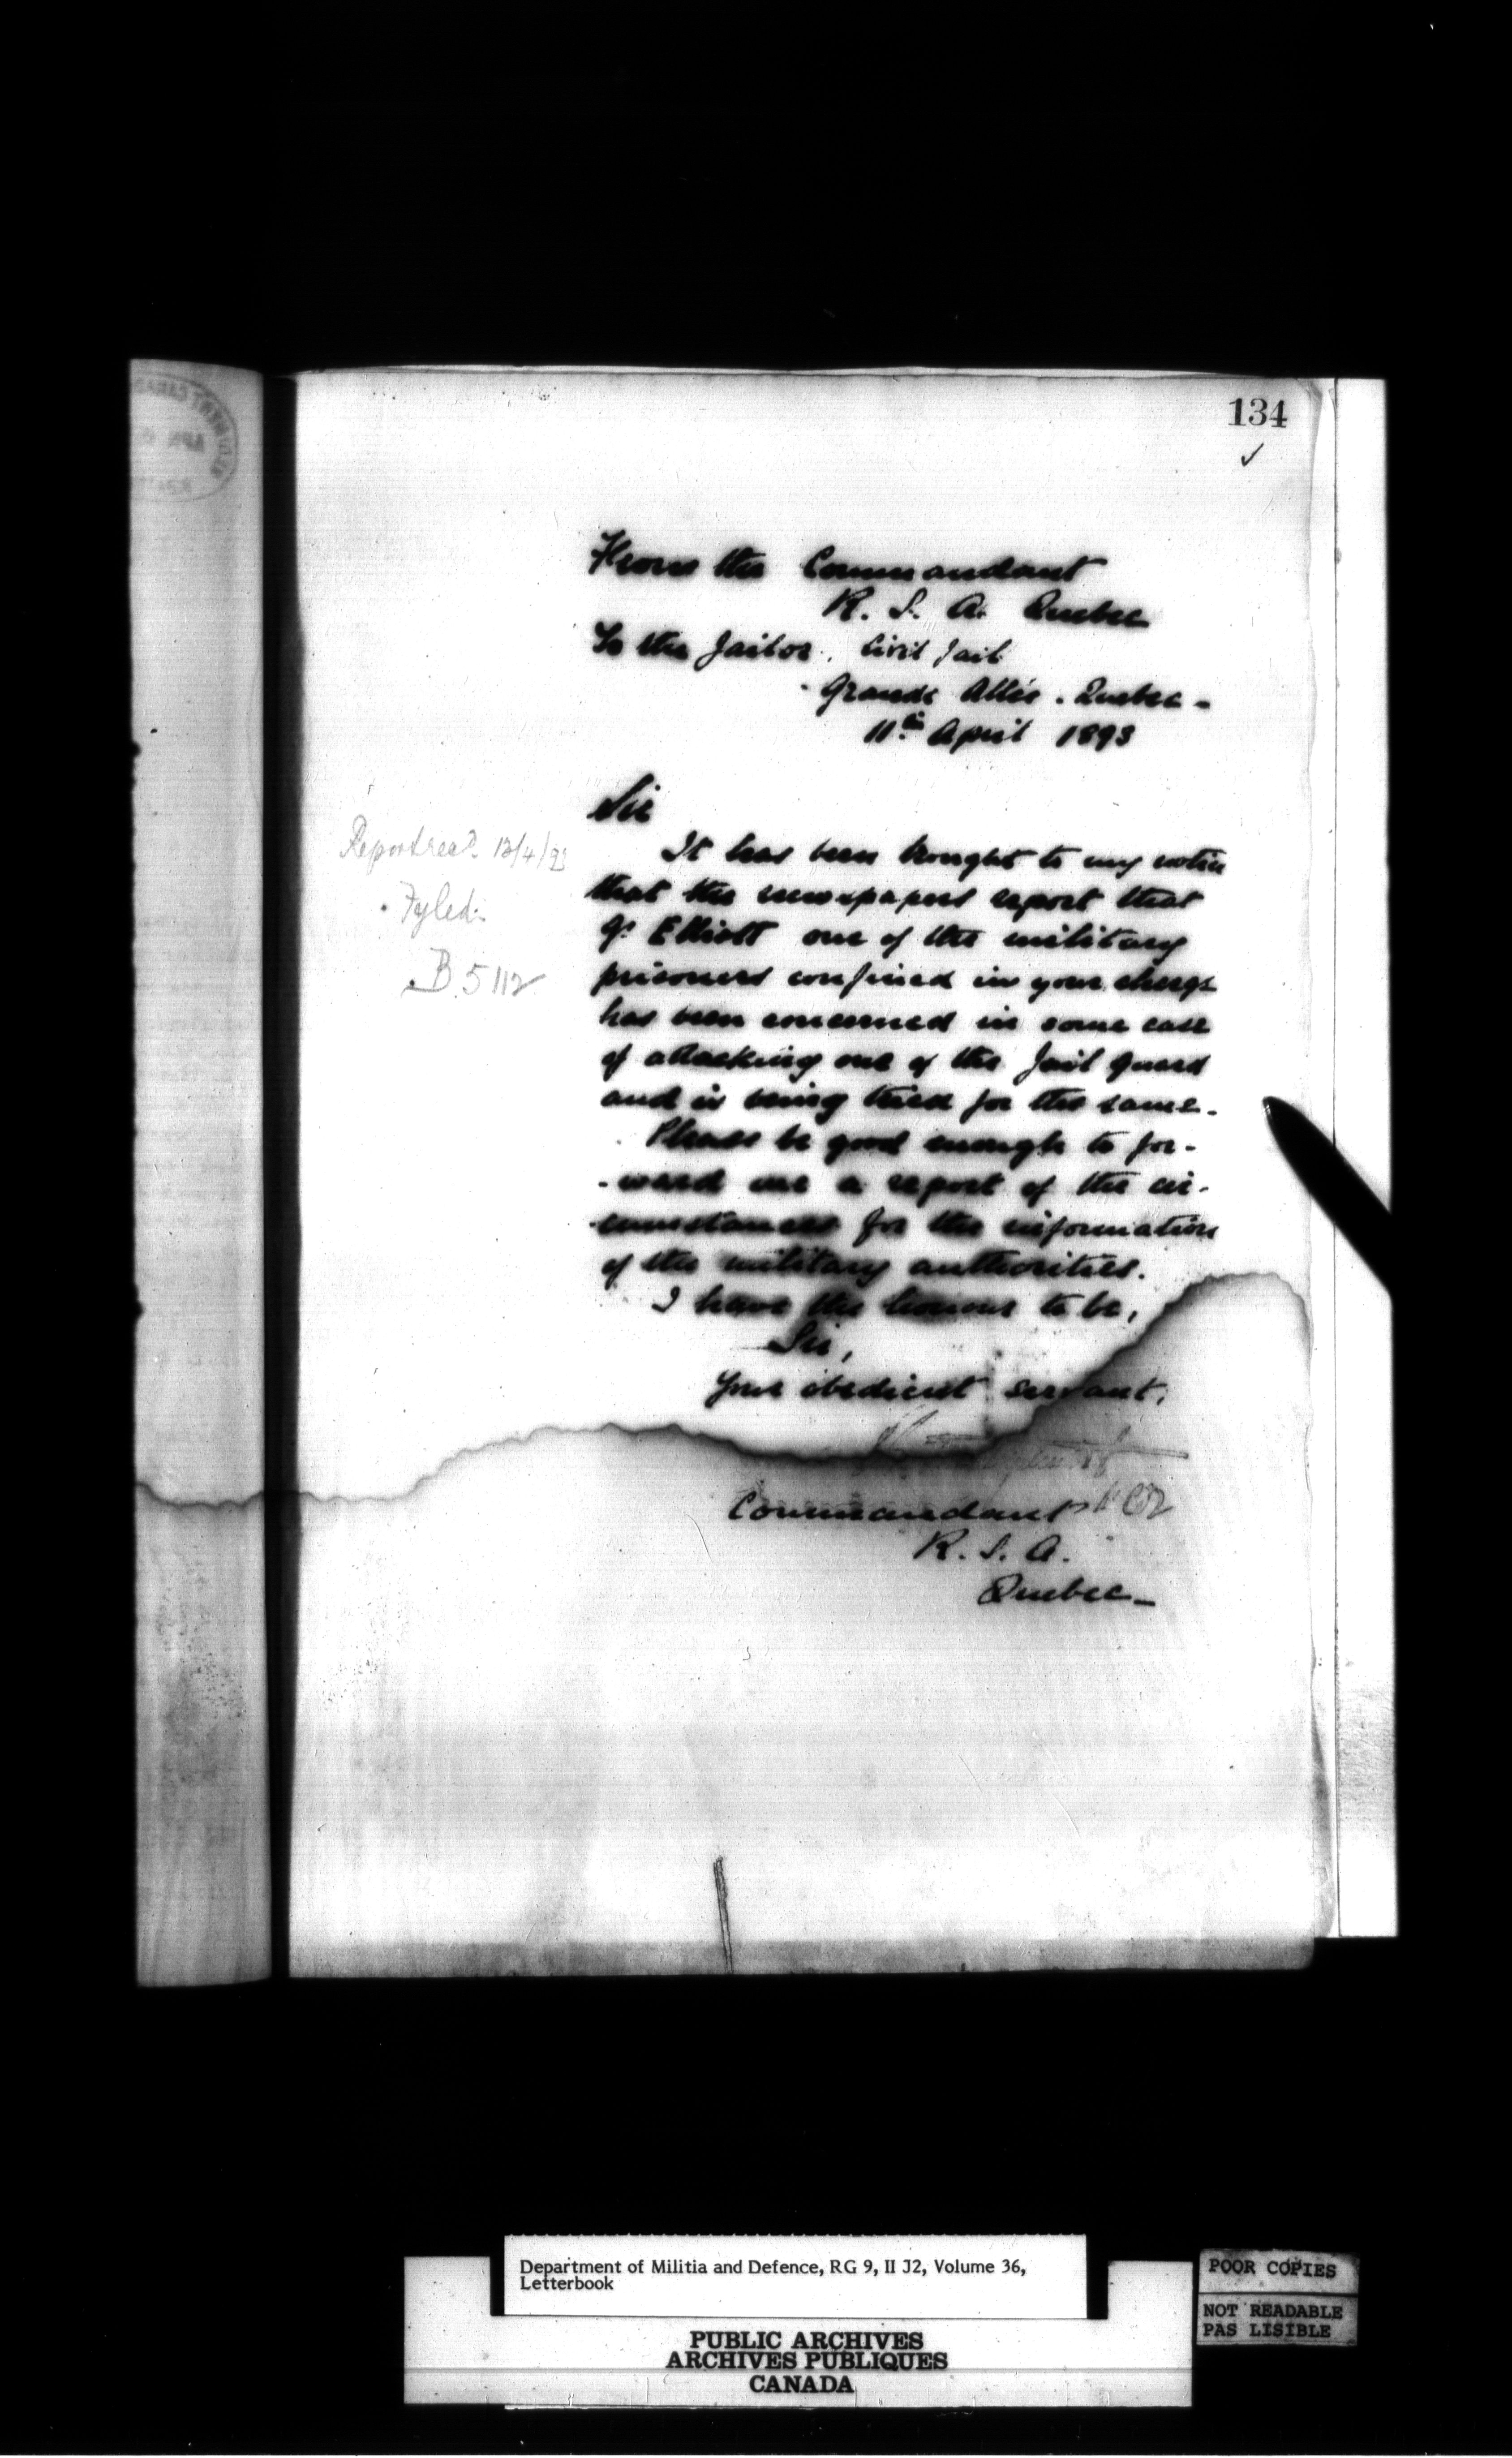 134
From the Commandant
R. S. A. Quebec
To the Jailor, Civil Jail
Grande Allée. Quebec-
11th April 1893
Sir
It has been brought to my notice
that the newspapers report that
Gr Elliott one of the military
prisoners confined in your charge
has been concerned in some case
of attacking one of the Jail Guard
and is being tried for the same.
Please be good enough to for-
-ward me a report of the cir-
-cumstances for the information
of the military authorities.
I have the honour to be,
Sir,
Your obedient servant,
Commandant
R. S. A.
Quebec-
Report recd. 13/4/93
Fyled.
B 5112
Department of Militia and Defence, RG 9, II J2, Volume 36,
Letterbook
PUBLIC ARCHIVES
ARCHIVES PUBLIQUES
CANADA
POOR COPIES
NOT READABLE
PAS LISIBLE